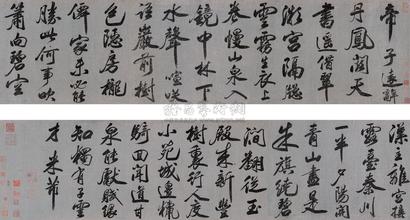 帝子遠辭
丹鳳闕天
書遙借翠
微宮隔牕
雲霧生衣上
卷幔山泉入
鏡中林下
水聲喧笑
語巖前樹
色隱房櫳
僊家未必能
勝此何事吹
簫向碧空
漢主離宮接
露臺秦川
一半夕陽開
青山盡是
朱旗繞碧
澗翻從玉
殿來新豐
樹裏行人度
小苑城邊獵
騎回聞道甘
泉能獻賦懸
知獨有子雲
才 米芾